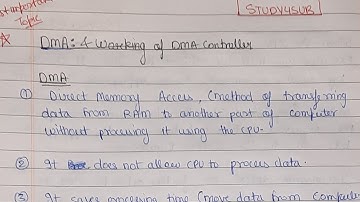 Important
Topic
STUDY4SUB
DMA: & Working of DMA Controller
DMA
① Direct Memory Access, (method of transferring
data from RAM to another part of computer
without processing it using the CPU.
② It does not allow CPU to process data.
③ It saves processing time (move data from computer